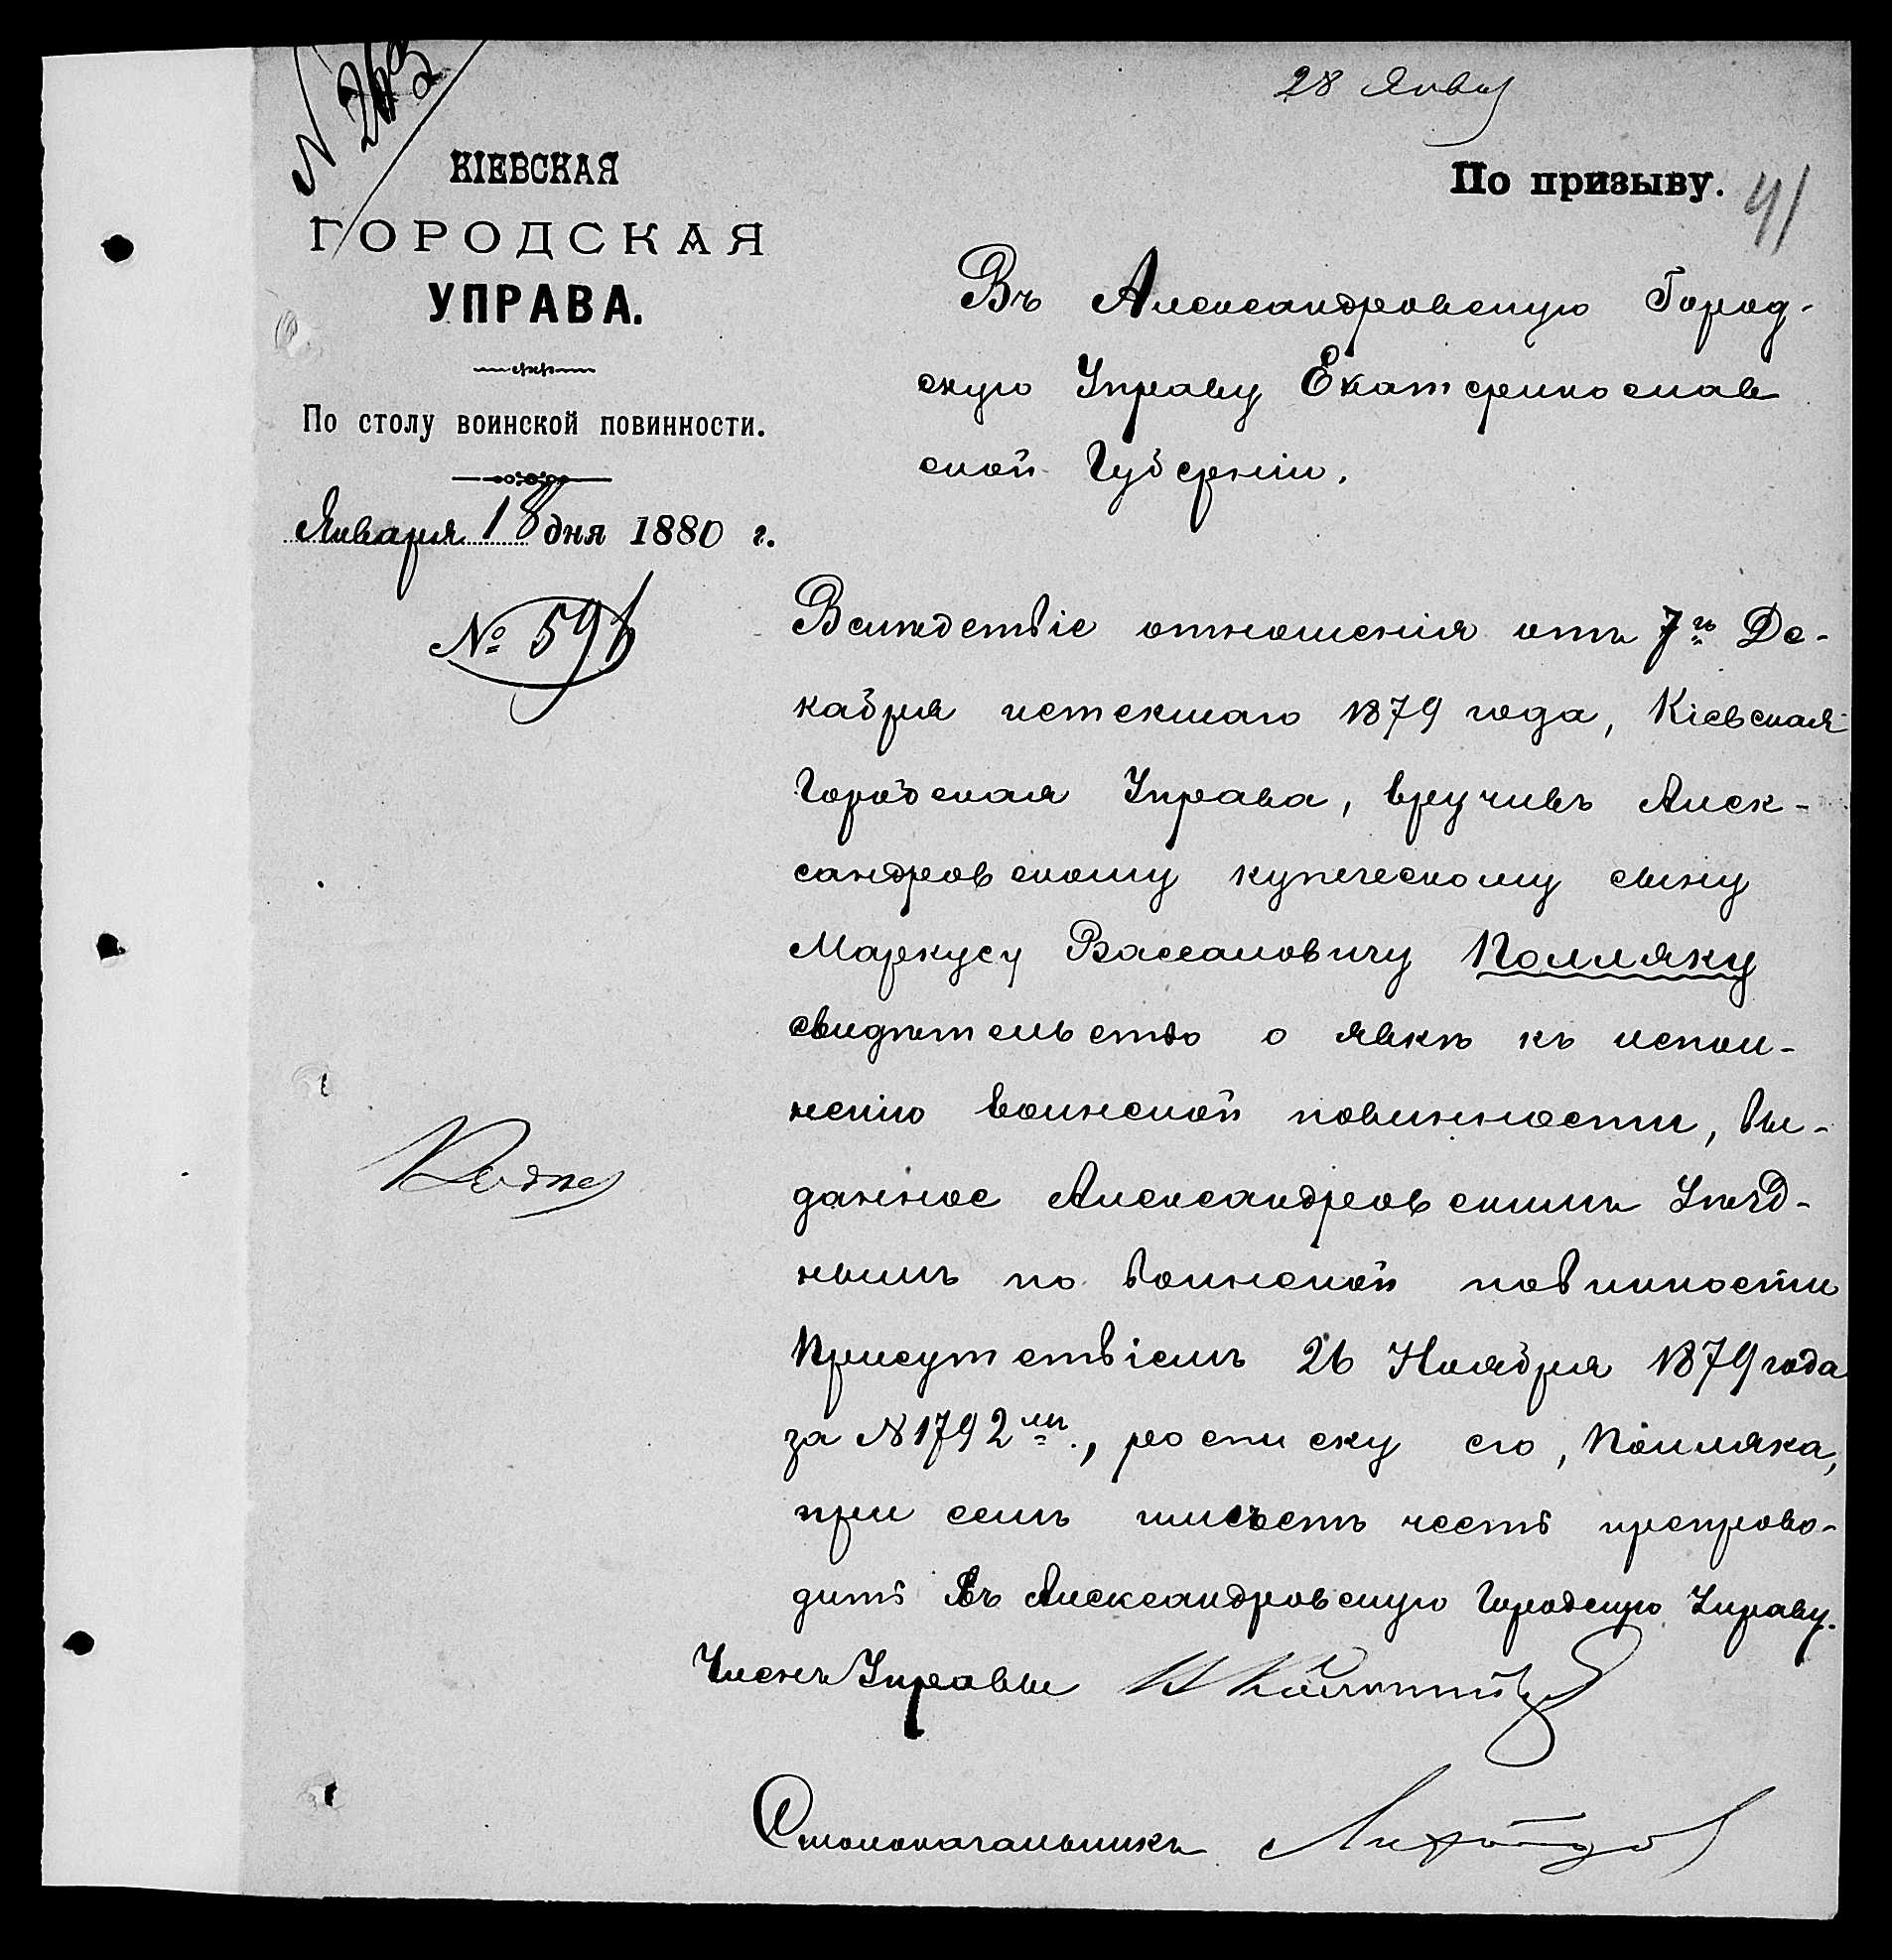 28 Янва
№ 263
КІЕВСКАЯ
ГОРОДСКАЯ
УПРАВА.
По столу воинской повинности.
Января 18 дня 1880 г.
№ 591
По призыву.
41
Въ Александровскую Город-
скую Управу Екатеринослав
ской Губерніи.
Вслѣдствіе отношенія отъ 7го Де-
кабря истекшаго 1879 года, Кіевская
Городская Управа, вручивъ Алек-
сандровскому купеческому сыну
Маркусу Вассаловичу Полляку
свидѣтельство о явкѣ къ испол-
ненію воинской повинности, вы-
данное Александровскимъ Уѣзд-
нымъ по воинской повинности
Присутствіемъ 26 Ноября 1879 года
за №1792мъ, росписку его, Полляка,
при семъ имѣетъ честь препрово-
дить въ Александровскую Городскую Управу.
Членъ Управы
Столоначальникъ